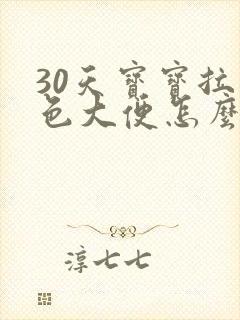 30天寶寶拉
色大便怎麼
淳七七